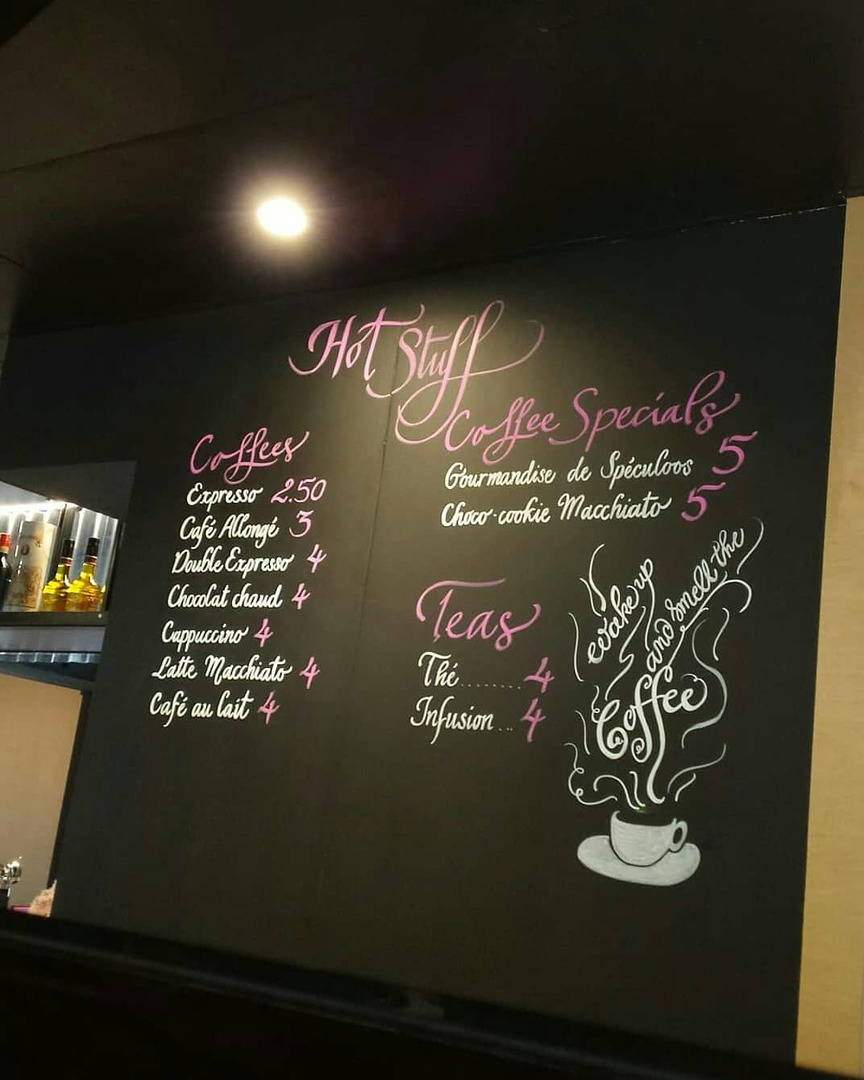 Hot Stuff
Coffees
Expresso 2.50
Café Allongé 3
Double Expresso 4
Chocolat chaud 4
Cappuccino 4
Latte Macchiato 4
Café au lait 4
Coffee Specials
Gourmandise de Spéculoos 5
Choco-cookie Macchiato 5
Teas
Thé........4
Infusion...4
Wake up
and smell the
Coffee